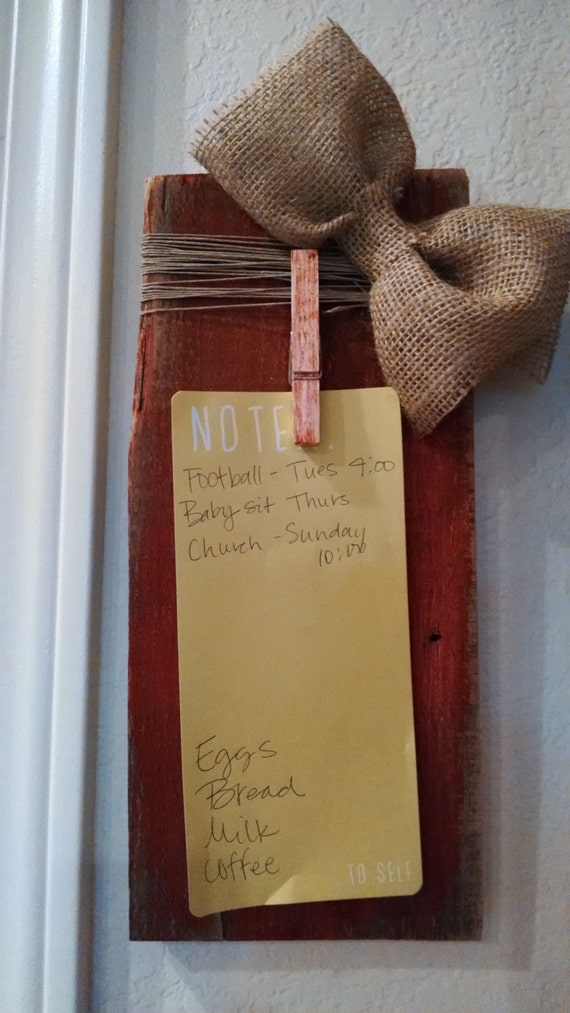 NOTE
Football - Tues 4:00
Baby sit Thurs
Church - Sunday
10:00
Eggs
Bread
Milk
Coffee
TO SELF